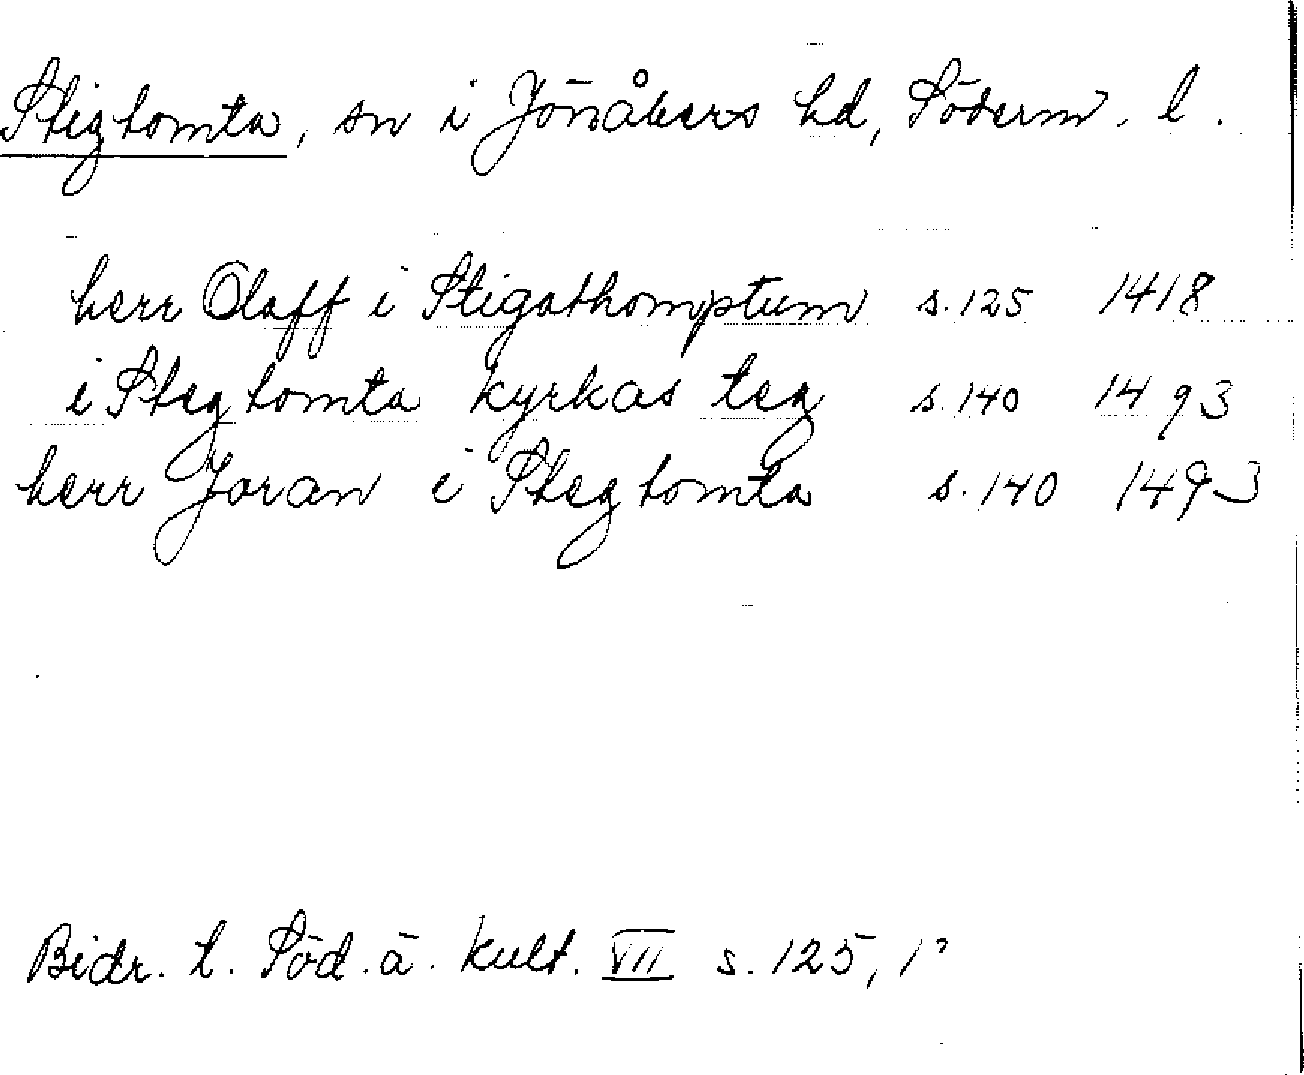 Stigtomta, sn i Jönåkers hd, Söderm. l.
herr Olaff i Stigathomptum s. 125 1418
i Stegtomta kyrkas teg s. 140 1493
herr Joran i Stegtomta s. 140 1493
Bidr. t. Söd. ä. kult. VII s. 125,